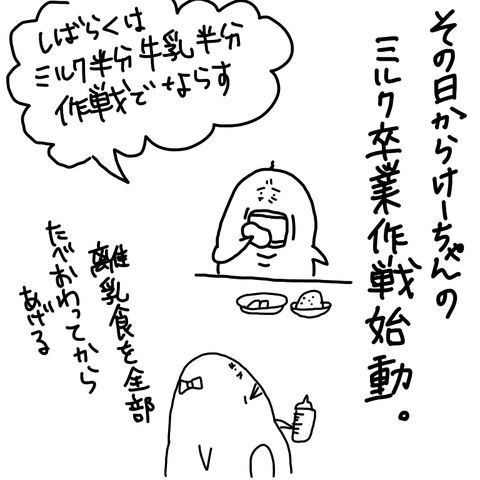 その日からけーちゃんの
ミルク卒業作戦始動。
しばらくは
ミルク半分牛乳半分
作戦でならす
離乳食を全部
たべおわってから
あげる